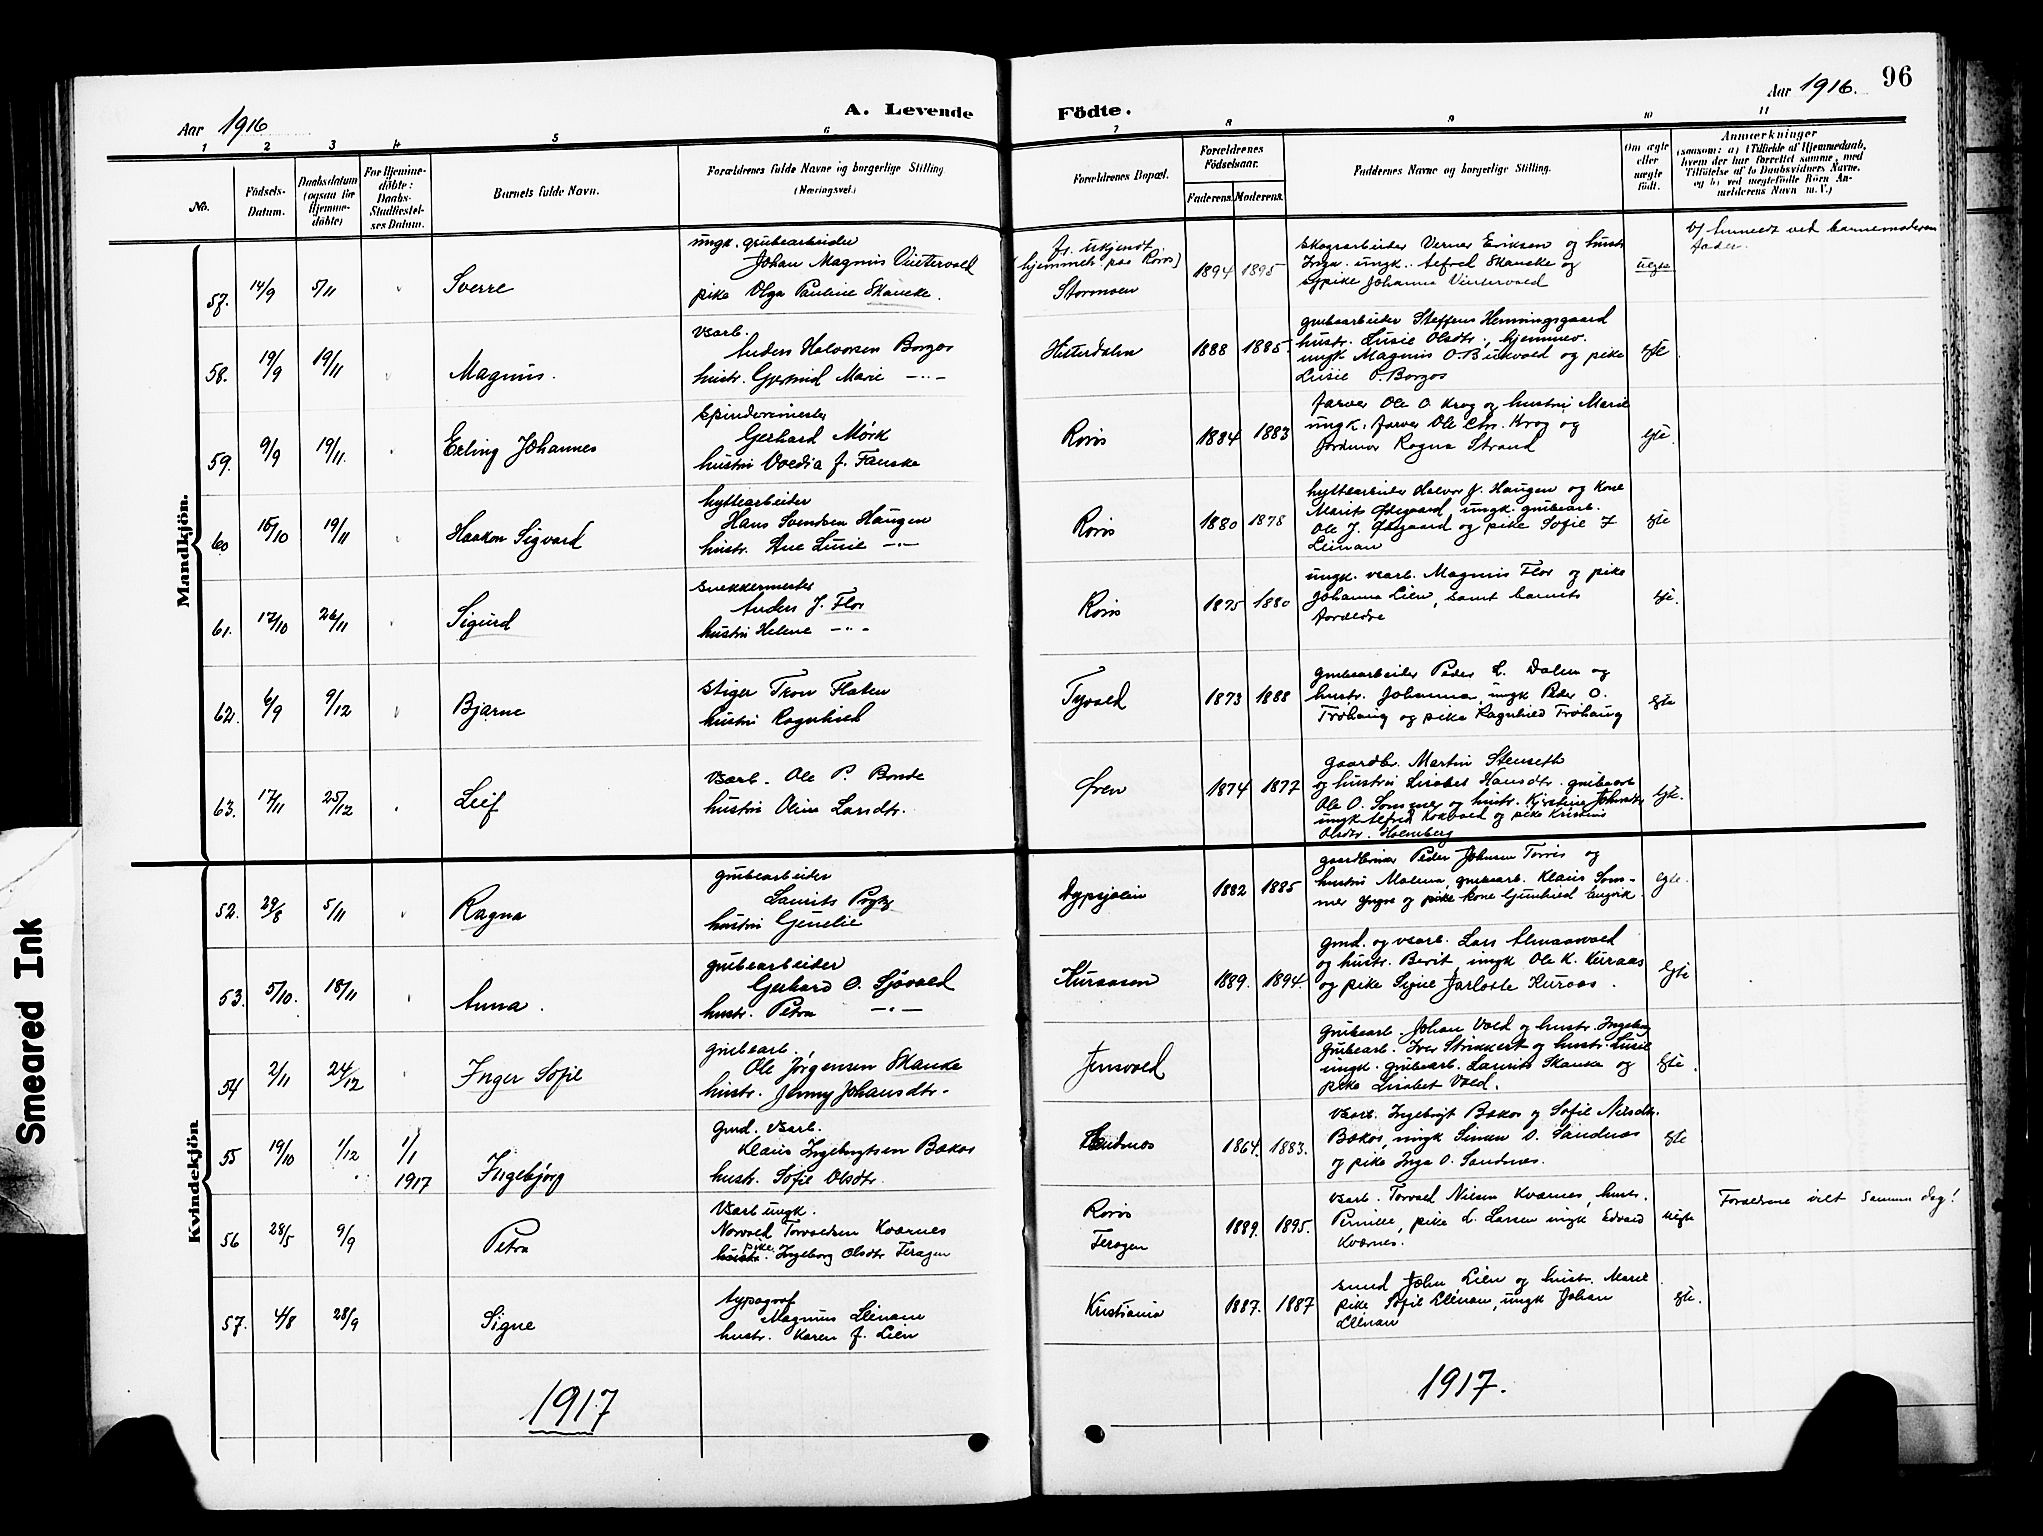 96
Aar 1916
A. Levende
Födte.
Aar 1916.
1 2 3 4 5 6 7 8 9 10 11
No.
Födsels-
Datum.
Daabsdatum
(ogsaa for
Hjemme-
döbte)
For Hjemme-
döbte:
Daabs-
Stadfæstel-
ses Datum.
Barnets fulde Navn.
Forældrenes fulde Navne og borgerlige Stilling
(Næringsvei.)
Forældrenes Bopæl.
Forældrenes
Födselsaar.
Faderens. Moderens.
Faddernes Navne og borgerlige Stilling.
Om ægte
eller
uægte
födt.
Anmærkninger
(saasom: a) i Tilfælde af Hjemmedaab,
hvem der har forrettet samme, med
Tilföielse af to Daabsvidners Navne,
og b) ved uægtefödte Börn An-
melderens Navn m. V.)
Mandkjön.
57. 14/9 5/11 Sverre
ungk. grubearbeider
Johan Magnus Vintervold
pike Olga Pauline Skancke.
fr. ukjendt
(hjemmeh. paa Røros)
Stormoen
1894 1895
skogsarbeider Verner Eriksen og hustr
Inga. ungk. Alfred Skancke og
pike Johanna Vintervold
uegte
b) Anmeldt ved barnemoderens
fader.
58. 19/9 19/11 Magnus.
vsarb.
Anders Halvorsen Borgos
hustr. Gjertrud Marie —"—
Hitterdalen
1888 1885.
grubearbeider Steffens Henningsgaard
hustr. Lusie Olsdtr., hjemmev.
ungk Magnus O. Bukvold og pike
Lusie P. Borgos
egte
59. 9/9 19/11. Erling Johannes
spindemester
Gerhard Mørk
hustru Valdia J. Fanske
Røros
1884 1883
farver Ole O. Krog og hustru Marie
ungk. farver Ole Chr. Krog og
jordmor Ragna Strand
egte.
60 15/10 19/11 Haakon Sigvard
hyttearbeider
Hans Svendsen Haugen
hustr. Ane Lusie —"—
Røros
1880 1878
hyttearbeider Halvor J. Haugen og kone
Marits Ødegaard, ungk. grubearb.
Ole J. Ødegaard og pike Sofie J
Leinan
egte
61. 17/10 26/11 Sigurd
snekkermester
Anders J. Flor
hustru Helene —"—
Røros
1875 1880
ungk. vsarb. Magnus Flor og pike
Johanna Lien, samt barnets
forældre
egte.
62. 6/9 9/12 Bjarne
stiger Tron Flaten
hustru Ragnhild
Tyvold
1873 1888
grubearbeider Peder L. Dalen og
hustr. Johanna, ungk Peder O.
Trøhaug og pike Ragnhild Trøhaug
egte
63. 17/11 25/12 Leif
vsarb. Ole P. Bonde
hustru Oline Larsdtr.
Øren
1874 1877
gaardbr. Martin Stenseth
og hustru Lisabet Hansdtr. grubearb
Ole O. Sommer og hustr. Kjerstine Johnsdtr
ungk Alfred Kokvold og pike Kristine
Olsdtr. Holmberg
egte.
Kvindekjön
52. 29/8 5/11 Ragna
grubearbeider
Laurits
hustru Genelie
Dypsjølien
1882 1885
gaardbruker Peder Johnsen Torres og
hustru Malena, grubearb. Klaus Som-
mer yngre og pike kone Gunhild Engvik.
egte.
53. 5/10. 18/11 Anna.
grubearbeider
Gerhard O. Sjøvold
hustr. Petra —"—
Kuraasen
1889. 1894.
gmd. og vsarb. Lars Almaasvold
og hustr. Berit, ungk Ole K. Kuraas
og pike Signe Jarlotte Kuraas.
egte
54 2/11 24/12 Inger Sofie
grubearb.
Ole Jørgensen Skancke
hustr. Jenny Johansdtr.
Jensvold
grubearb. Johan Vold og hustr. Ingeborg
grubearb. Iver Strickert og hustr. Lusie
ungk. grubearb. Laurits Skancke og
pike Lisabet Vold.
egte.
55 19/10 1/12 1/1
1917
Ingebjørg
gmd. vsarb.
Klaus Ingebrigtsen Bakos
hustr. Sofie Olsdtr.
1864. 1883.
vsarb. Ingebrigt Bakos og Sofie Nilsdtr.
Bakos, ungk Simen O. Sandnæs
og pike Inga O. Sandnæs.
egte
56 28/5 9/9 Petra
vsarb ungk.
Norvald Torvaldsen Kværnes
pike
hustr. Ingeborg Olsdtr Feragen
Røros
Feragen
1889. 1895.
vsarb. Torvald Nilsen Kværnes, hustr.
Pernille, pike L. Larsen ungk Edvard
Kværnes.
uegte
Forældrene viet samme dag!
57. 4/8 28/9 Signe
typograf
Magnus Leinan
hustr. Karen J. Lien
Kristiania
1887. 1887
smed John Lien og hustr. Marie
pike Sofie Leinan, ungk Johan
Leinan
egte.
1917
1917.
Smeared Ink